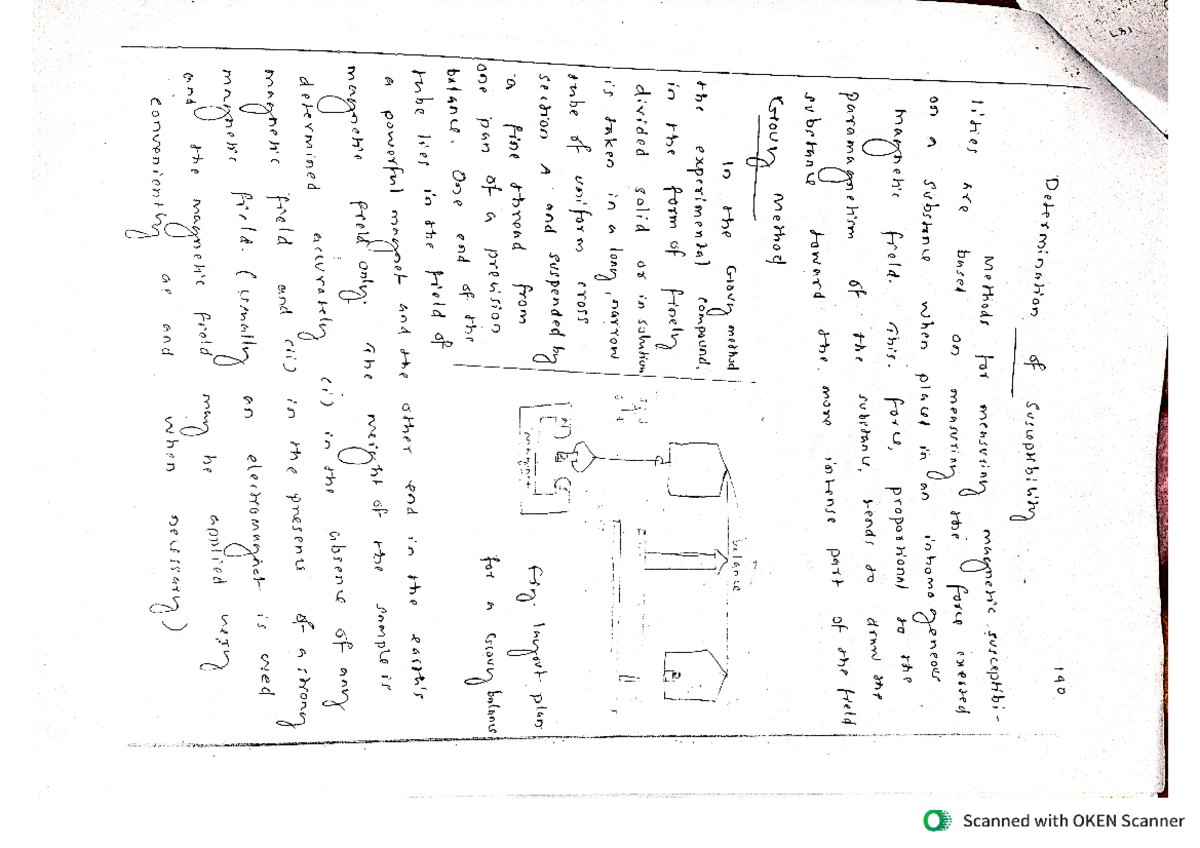 190
Determination of Susceptibility
Methods for measuring magnetic susceptibi-
lities are based on measuring the force exerted
on a substance when placed in an inhomogeneous
magnetic field. This force, proportional to the
paramagnetism of the substance, tends to draw the
substance toward the more intense part of the field
Gouy Method
In the Gouy method
the experimental compound,
in the form of finely
divided solid or in solution
is taken in a long, narrow
tube of uniform cross
section A and suspended by
a fine thread from
one pan of a precision
balance. One end of the
tube lies in the field of
a powerful magnet and the other end in the earth's
magnetic field only. The weight of the sample is
determined accurately (i) in the absence of any
magnetic field and (ii) in the presence of a strong
magnetic field. (usually an electromagnet is used
and the magnetic field may be applied very
conveniently as and when necessary)
balance
magnet
fig. layout plan
for a Gouy balance
Scanned with OKEN Scanner